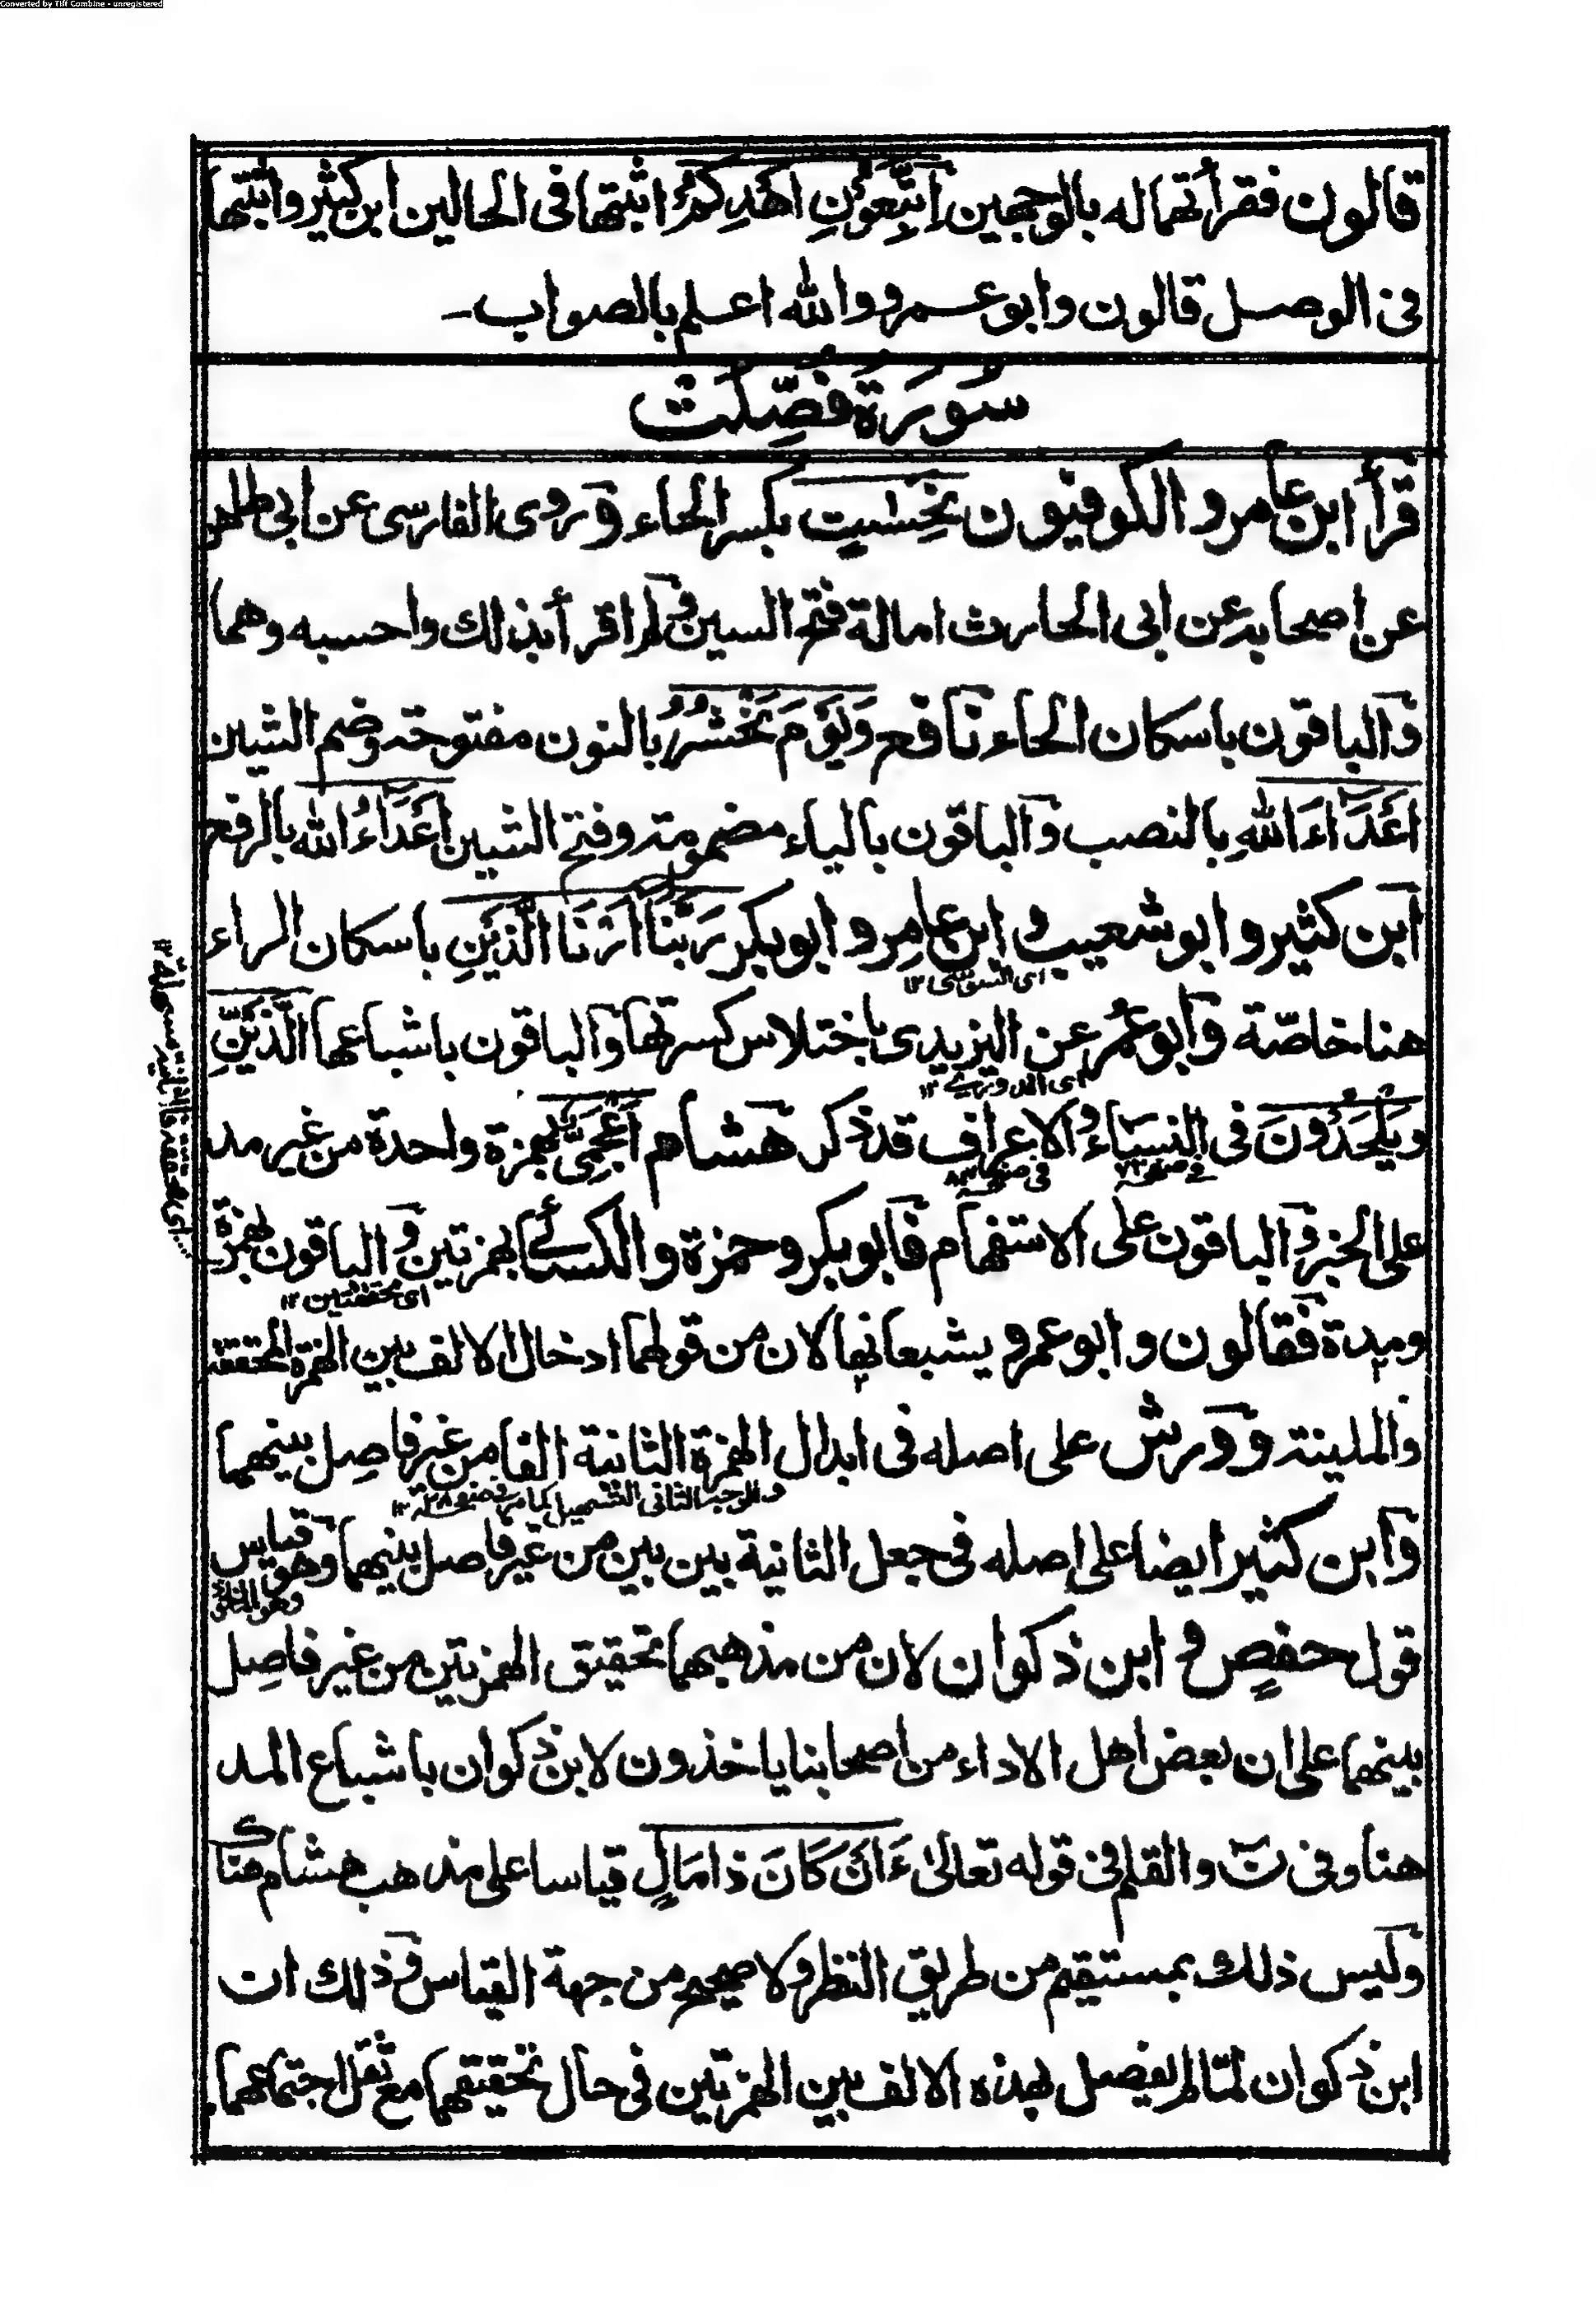 Converted by Tiff Combine - unregistered
قالون فقرأتهما له بالوجهين اَتَّبِعُوْنِ اَهْدِكُمْ اثبتها فى الحالين ابن كثير واثبتها
فى الوصل قالون وابو عمرو والله اعلم بالصواب۔
سُوْرَةُ فُصِّلَتْ
قرأ ابن عامر و الكوفيون نَحِسَاتٍ بكسر الحاء وروى الفارسى عن ابى طاهر
عن اصحابه عن ابى الحارث امالة فتحة السين ولم اقرأ بذلك واحسبه وهما
والباقون باسكان الحاء نافع وَيَوْمَ نَحْشُرُ بالنون مفتوحة وضم الشين
اَعْدَاءَ اللهِ بالنصب والباقون بالياء مضمومة وفتح الشين اَعْدَاءُ الله بالرفع
ابن كثير و ابو شعيب و ابن عامر و ابو بكر رَبَّنَا اَرْنَا الَّذَيْنِ باسكان الراء
اى السوسى ١٢
هنا خاصّة وابو عُمر عن اليزيدى باختلاس كسرتها والباقون باشباعها الَّذَيْنِّ
اى الدورى ١٢
وَيَلْحَدُوْنَ فى النساء والاعراف قد ذكر هشام اَعْجَمِىٌّ بهمزة واحدة من غير مد
فى صفحة ٧٣ فى صفحة ٨٣
على الخبر والباقون على الاستفهام فابو بكر و حمزة و الكسائى بهمزتين و الباقون بهمزة
اى محققتين ١٢
ومدة فقالون و ابو عمرو يشبعانها لان من قولهما ادخال الالف بين الهمزة المحققة
والملينة و ورش على اصله فى ابدال الهمزة الثانية الفا من غير فاصل بينهما
والوجه الثانى التسهيل كما مر فى صفحة ٢٨ ١٢
وابن كثير ايضا على اصله فى جعل الثانية بين بين من غير فاصل بينهما وهو قياس
قول حفصٍ و ابن ذكوان لان من مذهبهما تحقيق الهمزتين من غير فاصل
بينهما على ان بعض اهل الاداء من اصحابنا ياخذون لابن ذكوان باشباع المد
هنا وفى نٓ والقلم فى قوله تعالى ءَاَنْ كَانَ ذَا مَالٍ قياسا على مذهب هشام هناك
وليس ذلك بمستقيم من طريق النظر ولا صحيح من جهة القياس وذلك ان
ابن ذكوان لمّا لم يفصل بهذه الالف بين الهمزتين فى حال تحقيقهما مع ثقل اجتماعهما